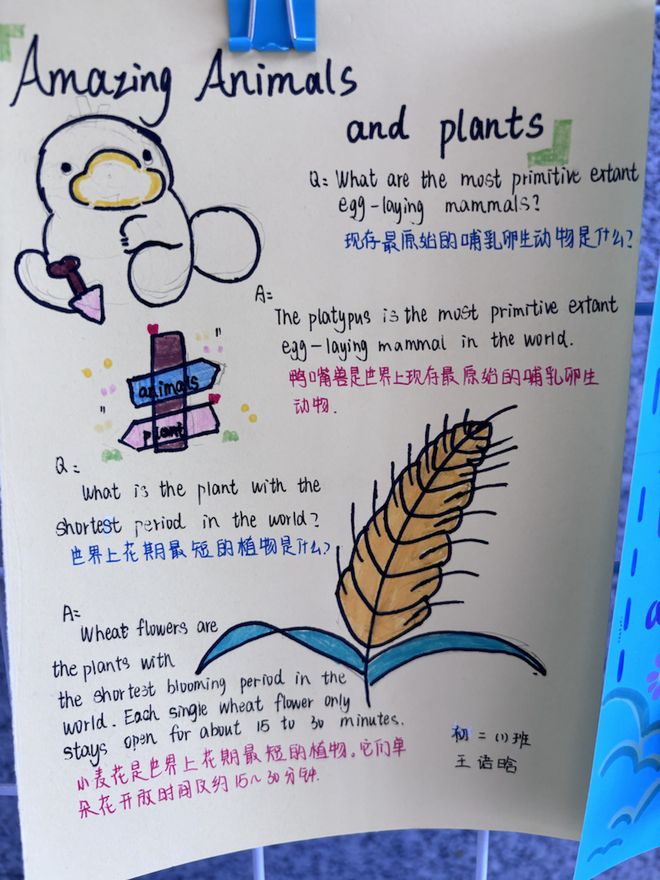 Amazing Animals
and plants
Q: What are the most primitive extant
egg-laying mammals?
现存最原始的哺乳卵生动物是什么?
A:
The platypus is the most primitive extant
egg-laying mammal in the world.
鸭嘴兽是世界上现存最原始的哺乳卵生
动物.
animals
plant
Q:
What is the plant with the
shortest period in the world?
世界上花期最短的植物是什么?
A:
Wheat flowers are
the plants with
the shortest blooming period in the
world. Each single wheat flower only
stays open for about 15 to 30 minutes.
小麦花是世界上花期最短的植物。它们单
朵花开放时间仅约15~30分钟.
初二(1)班
王语晗